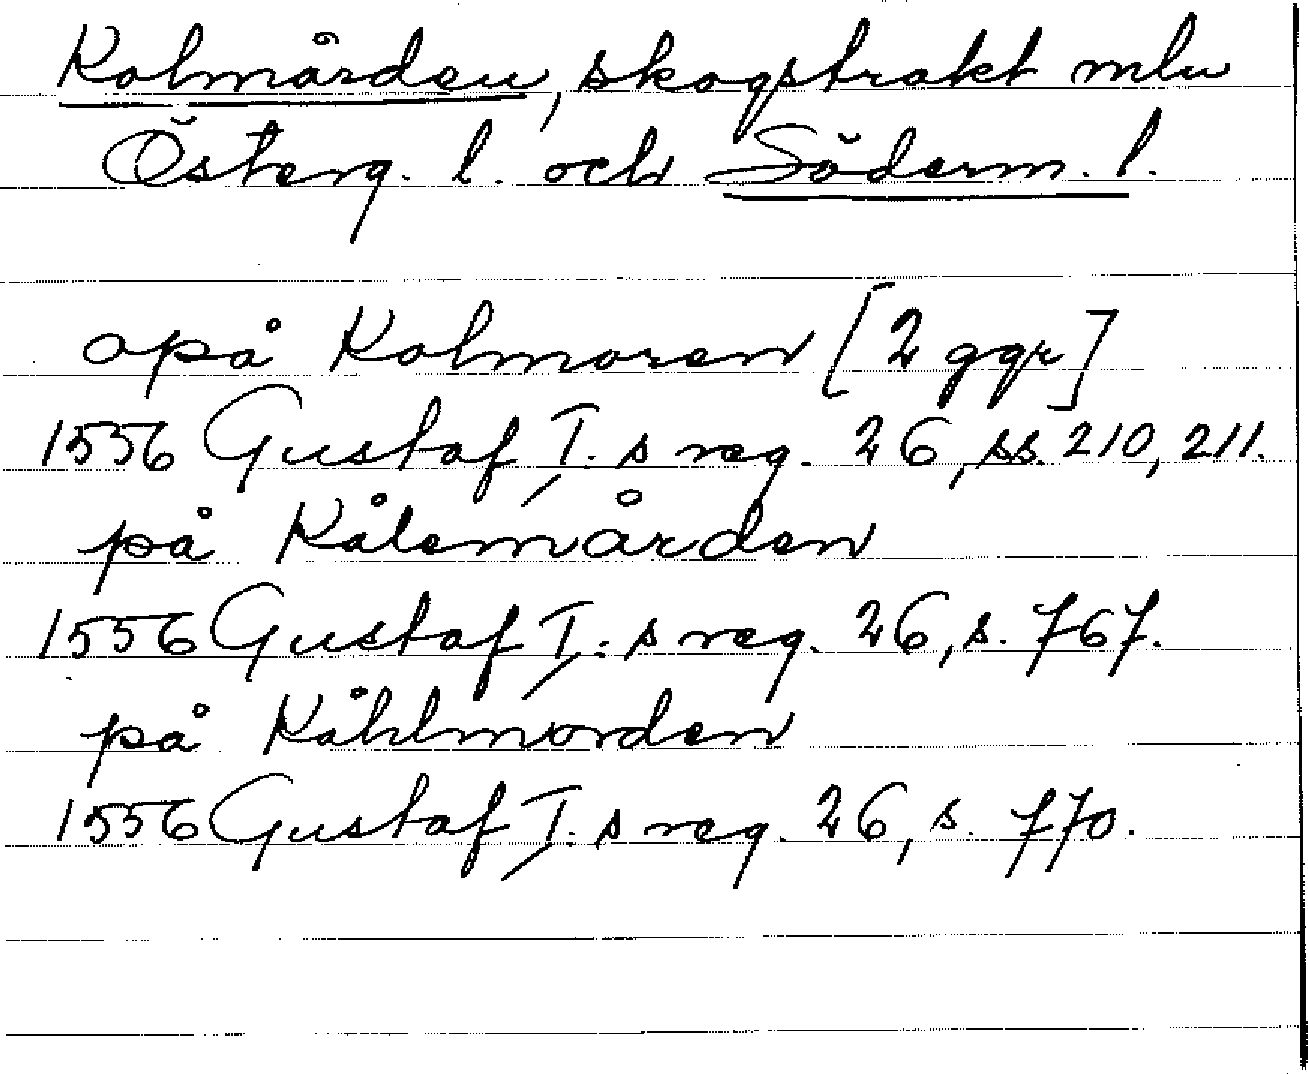 Kolmården, skogstrakt mln
Österg. l. och Söderm. l.
opå Kolmoren [2 ggr]
1556 Gustaf I:s reg. 26, ss. 210, 211.
på Kålemården
1556 Gustaf I:s reg. 26, s. 767.
på Kåhlmorden
1556 Gustaf I:s reg. 26, s. 770.